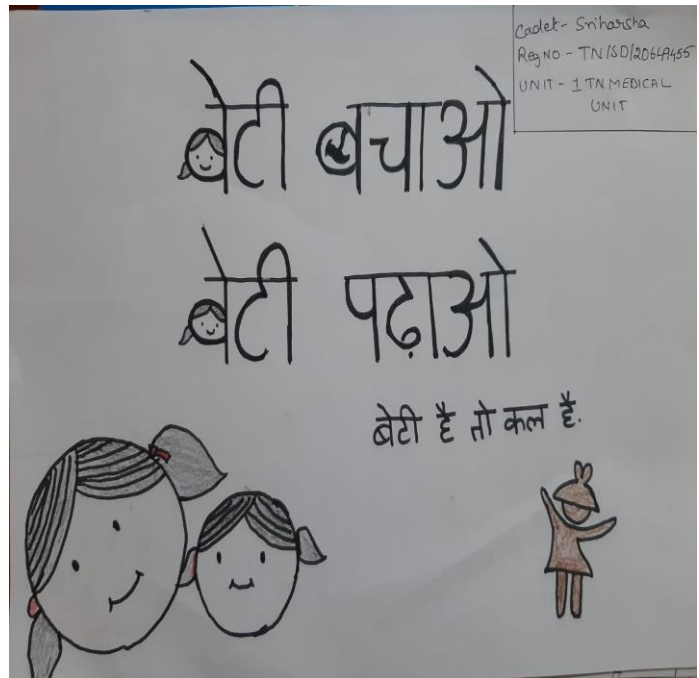 Cadet - Sriharsha
Reg NO - TN/SD/20649455
UNIT - 1 TN MEDICAL
UNIT
बेटी बचाओ
बेटी पढ़ाओ
बेटी है तो कल है.